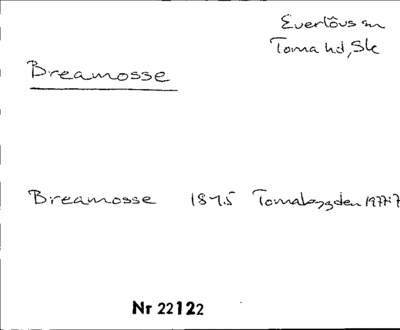 Everlövs sn
Torna hd, Sk
Breamosse
Breamosse 1815 Tornabygden 1977:7
Nr 22122